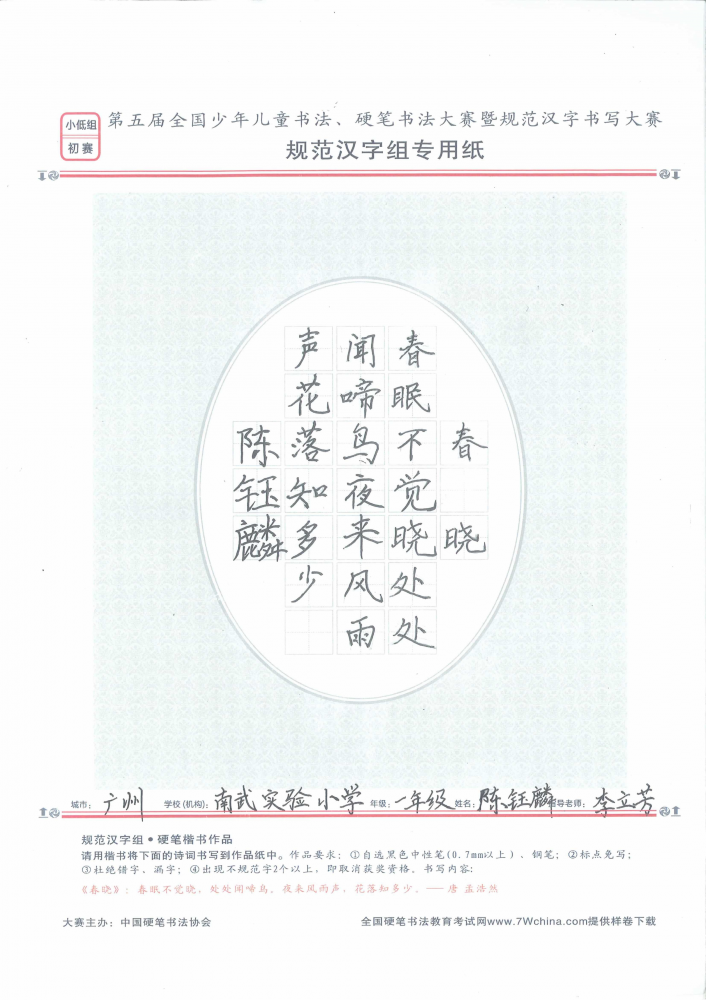 小低组
初赛
第五届全国少年儿童书法、硬笔书法大赛暨规范汉字书写大赛
规范汉字组专用纸
春晓
春眠不觉晓处处
闻啼鸟夜来风雨
声花落知多少
陈钰麟
城市：广州 学校(机构)：南武实验小学 年级：一年级 姓名：陈钰麟 指导老师：李立芳
规范汉字组•硬笔楷书作品
请用楷书将下面的诗词书写到作品纸中。作品要求：①自选黑色中性笔(0.7mm以上)、钢笔；②标点免写；
③杜绝错字、漏字；④出现不规范字2个以上，即取消获奖资格。书写内容：
《春晓》：春眠不觉晓，处处闻啼鸟。夜来风雨声，花落知多少。——唐 孟浩然
大赛主办：中国硬笔书法协会
全国硬笔书法教育考试网www.7Wchina.com提供样卷下载